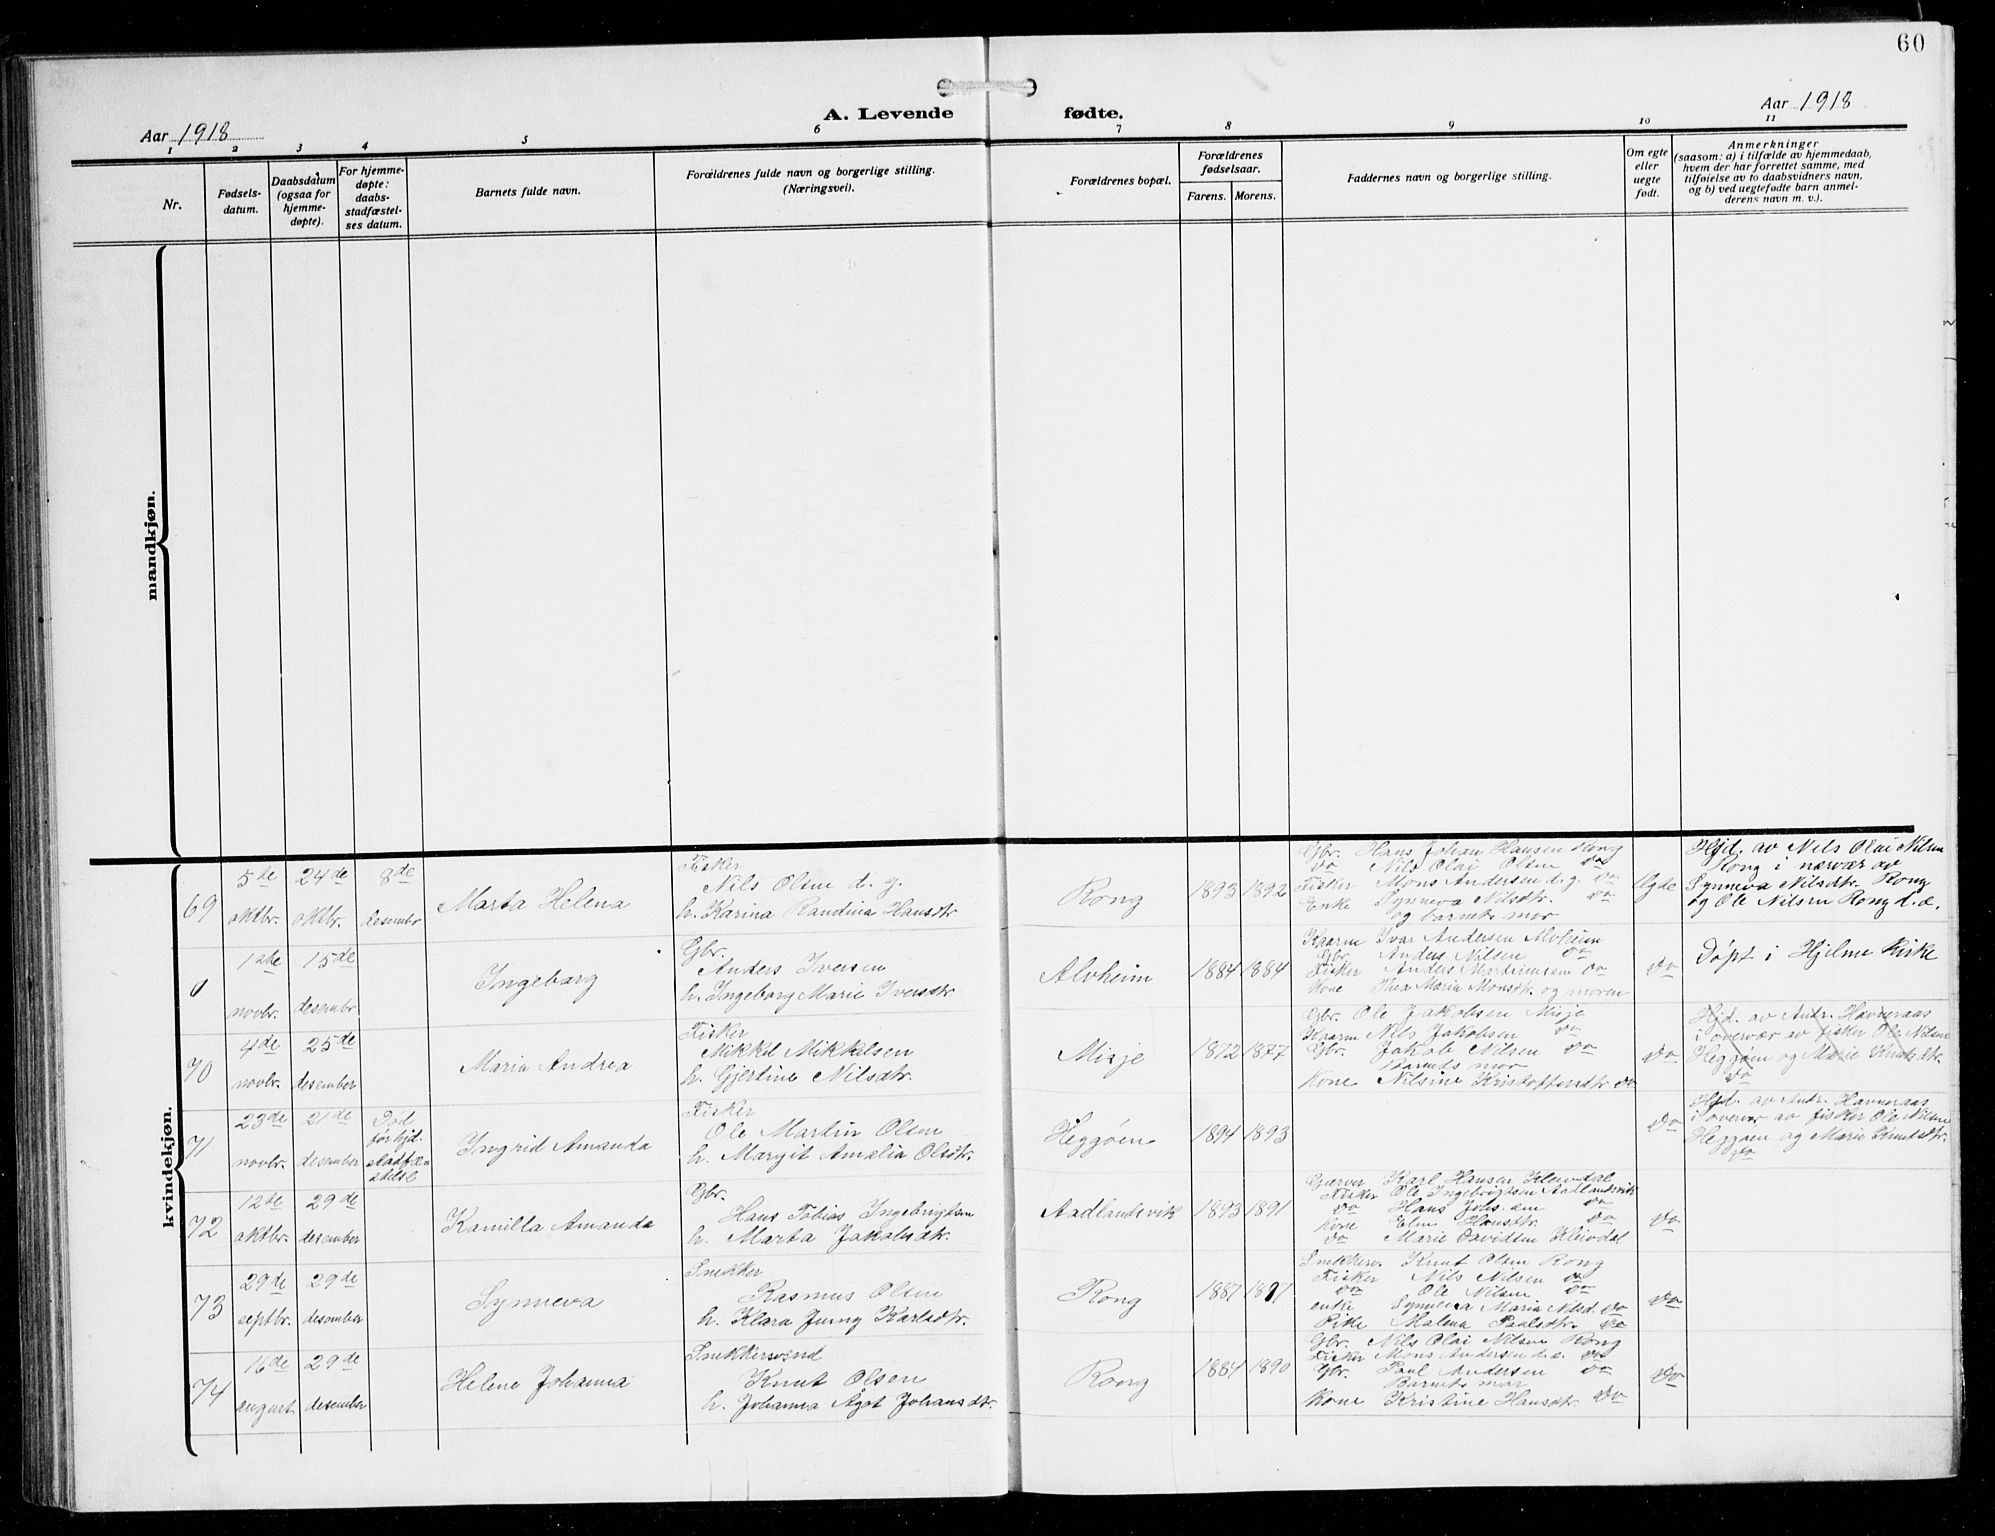 60
A. Levende fødte.
Aar 1918
Aar 1918
1 2 3 4 5 6 7 8 9 10 11
Nr.
Fødsels-
datum.
Daabsdatum
(ogsaa for
hjemme-
døpte).
For hjemme-
døpte:
daabs-
stadfæstel-
ses datum.
Barnets fulde navn.
Forældrenes fulde navn og borgerlige stilling.
(Næringsvei).
Forældrenes bopæl.
Forældrenes
fødselsaar.
Farens. Morens.
Faddernes navn og borgerlige stilling.
Om egte
eller
uegte
født.
Anmerkninger
(saasom: a) i tilfælde av hjemmedaab,
hvem der har forrettet samme, med
tilføielse av to daabsvidners navn,
og b) ved uegtefødte barn anmel-
derens navn m. v.).
mandkjøn.
kvindekjøn.
69
5de
oktbr.
24de
oktbr.
8de
desembr
Marta Helena
Fisker
Nils Olsen d. y.
h. Karina Randina Hansdtr
Rong
1893 1892
Gbr. Hans Johan Hansen Rong
do Nils Olai Olsen do
Fisker Mons Andersen d. y. do
Enke Synneva Nilsdtr. do
og barnets mor
Egte
Hjd. av Nils Olai Nilsen
Rong i nærvær av
Synneva Nilsdtr. Rong
og Ole Nilsen Rong d. e.
0
1ste
novbr.
15de
desembr
Ingeborg
Gbr.
Anders Iversen
h. Ingeborg Marie Iversdtr
Alvheim
1884 1884
Kaarm Ivar Andersen Alvheim
Gbr. Anders Nilsen do
Fisker Anders Martinusen do
Kone Thea Maria Monsdtr. og moren
do
Døpt i Hjelme kirke
70
4de
novbr.
25de
desember
Maria Andrea
Fisker
Mikkel Mikkelsen
h. Gjertine Nilsdtr.
Misje
1872 1877
Gbr. Ole Jakobsen Misje
Kaarm Nils Jakobsen do
Gbr. Jakob Nilsen do
Barnets mor
Kone Nilsine Kristoffersdtr do
do
Hjd. av Andr. Havneraas
i overvær av fisker Ole Nilsen
Heggøen og Marie Knutsdtr.
do
71
23de
novbr.
21de
desember
Død
før hjd.
stadfæ-
stelse
Ingrid Amanda
Fisker
Ole Martin Olsen
h. Margit Amalia Olsdtr.
Heggøen
1894 1893
do
Hjd. av Andr. Havneraas
i overvær av fisker Ole Nilsen
Heggøen og Marie Knutsdtr.
do
72
12te
oktbr.
29de
desember
Kamilla Amanda
Gbr.
Hans Tobias Ingebrigtsen
h. Marta Jakobsdtr.
Aadlandsvik
1893 1891
Garver Karl Hansen Kleivdal
Fisker Ole Ingebrigtsen Aadlandsvik
do Hans Johs.sen do
Kone Elen Hansdtr. do
do Marie Davidsen Kleivdal
do
73
29de
septbr.
29de
desember
Synneva
Snekker
Rasmus Olsen
h. Klara Jenny Karlsdtr.
Rong
1887 1887
Snekkersv. Knut Olsen Rong
Fisker Nils Nilsen do
do Ole Nilsen do
enke Synneva Maria Nilsd. do
Pike Malena Paulsdtr. do
do
74
16de
august
29de
desember
Helene Johanna
Snekkersvend
Knut Olsen
h. Johanna Agot Johansdtr.
Rong
1884 1890
Gbr. Nils Olai Nilsen Rong
Fisker Mons Andersen d. e. do
Gbr. Paul Andersen do
Barnets mor
Kone Kristine Hansdtr do
do